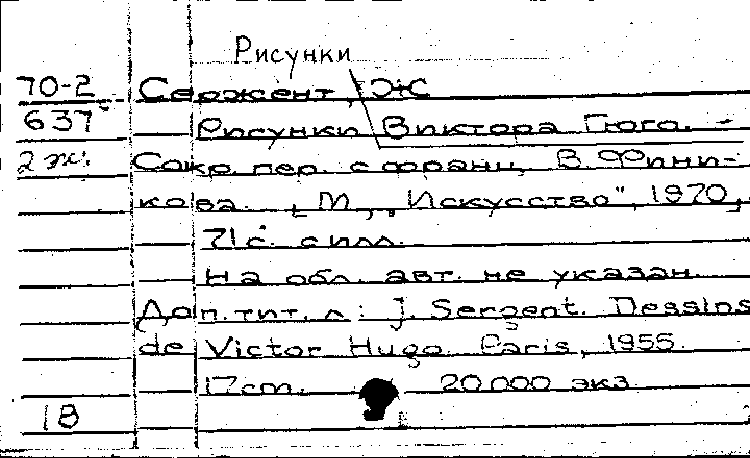 Рисунки
70-2 Сержент, Ж
637 Рисунки Виктора Гюго. -
2 эк. Сокр. пер. с франц. В. Фини-
кова. [М., "Искусство", 1970,
71 с. с илл.
На обл. авт. не указан.
Доп. тит. л.: J. Sergent. Dessins
de Victor Hugo. Paris, 1955.
17 cm. 20 000 экз.
18